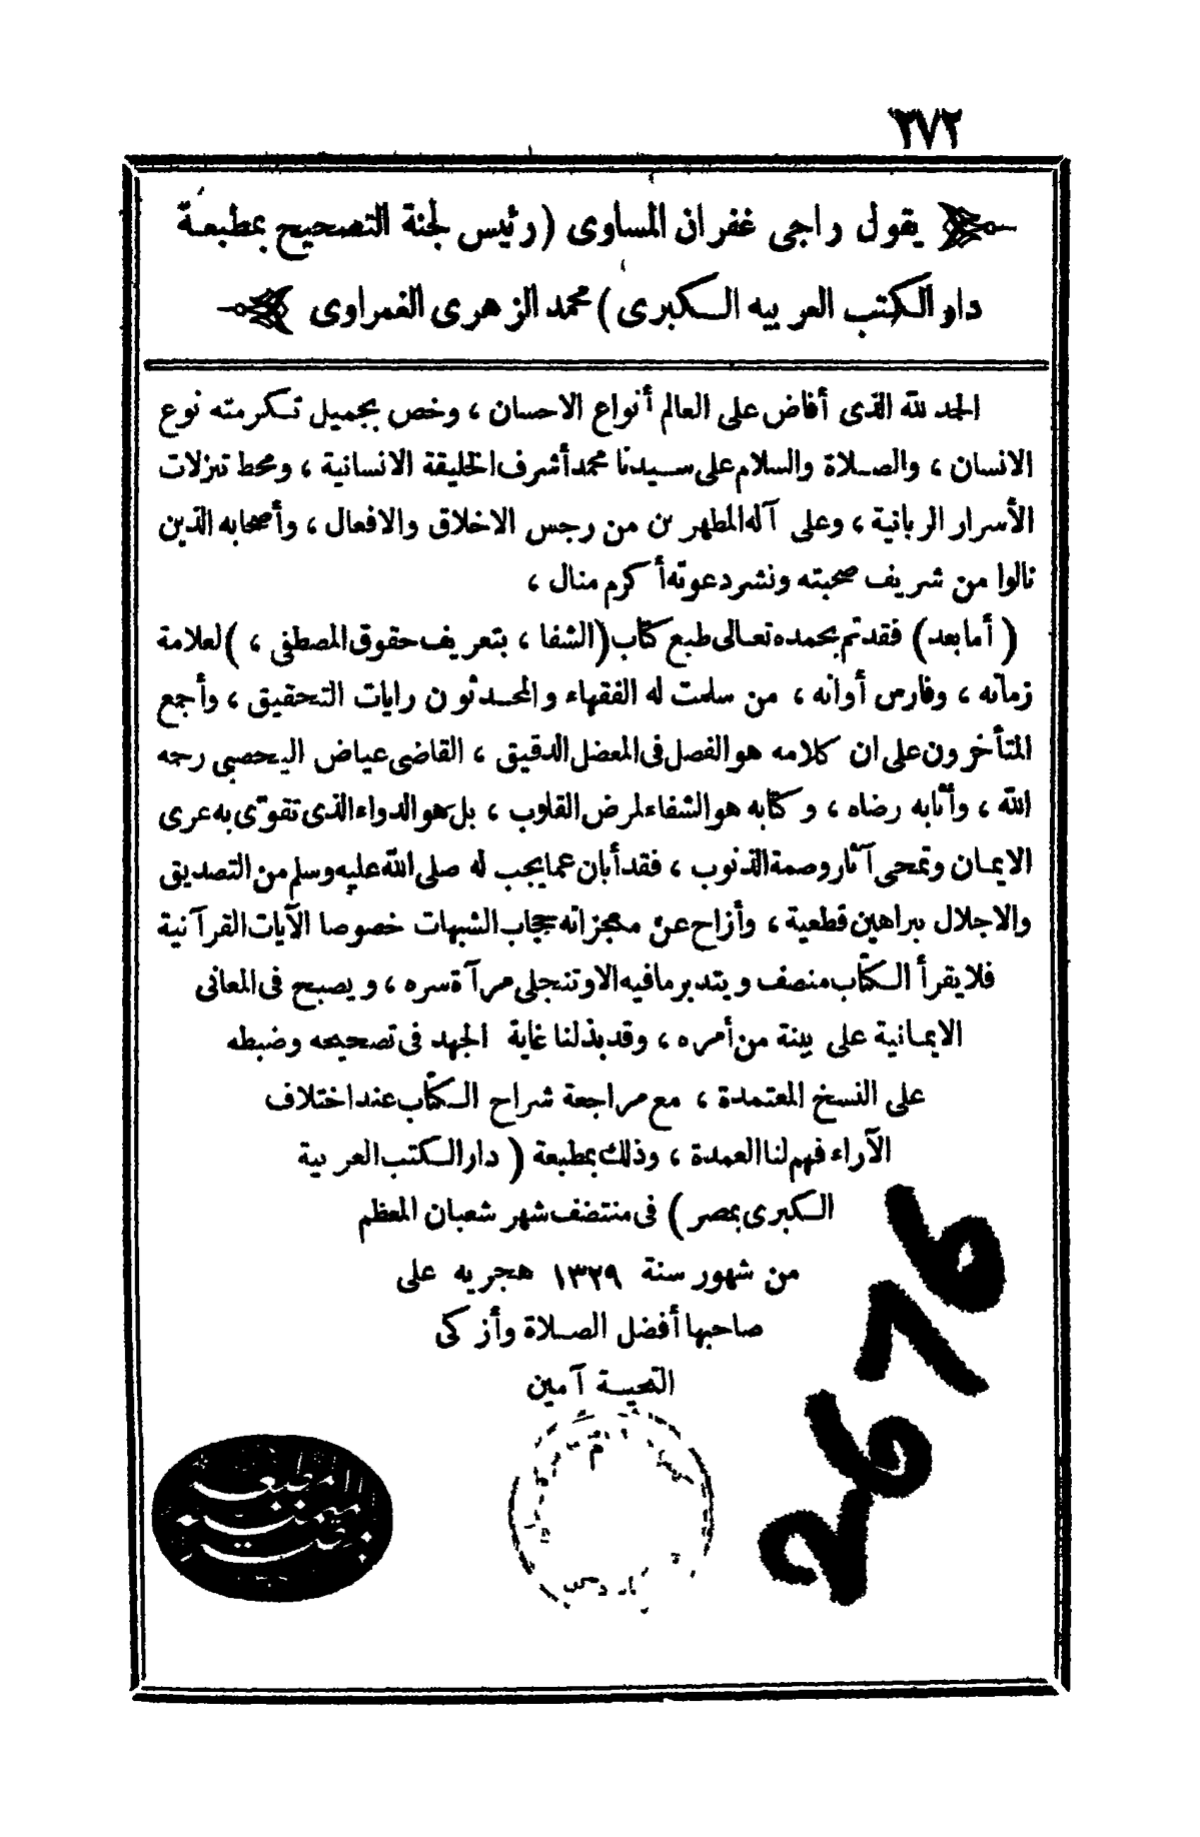 ٢٧٢
يقول راجى غفران المساوى (رئيس لجنة التصحيح بمطبعة
دار الكتب العربيه الكبرى) محمد الزهرى الغمراوى
الحمد لله الذى أفاض على العالم أنواع الاحسان ، وخص بجميل تكرمته نوع
الانسان ، والصلاة والسلام على سيدنا محمد أشرف الخليقة الانسانية ، ومحط تنزلات
الأسرار الربانية ، وعلى آله المطهرين من رجس الاخلاق والافعال ، وأصحابه الذين
نالوا من شريف صحبته ونشر دعوته أكرم منال ،
(أما بعد) فقد تم بحمده تعالى طبع كتاب (الشفا ، بتعريف حقوق المصطفى ، ) لعلامة
زمانه ، وفارس أوانه ، من سلمت له الفقهاء والمحدثون رايات التحقيق ، وأجمع
المتأخرون على ان كلامه هو الفصل فى المعضل الدقيق ، القاضى عياض اليحصبى رحمه
الله ، وأثابه رضاه ، وكتابه هو الشفاء لمرض القلوب ، بل هو الدواء الذى تقوّى به عرى
الايمان وتمحى آثار وصمة الذنوب ، فقد أبان عما يجب له صلى الله عليه وسلم من التصديق
والاجلال ببراهين قطعية ، وأزاح عن معجزاته حجاب الشبهات خصوصا الآيات القرآنية
فلا يقرأ الكتاب منصف ويتدبر مافيه الا وتنجلى مرآة سره ، ويصبح فى المعانى
الايمانية على بينة من أمره ، وقد بذلنا غاية الجهد فى تصحيحه وضبطه
على النسخ المعتمدة ، مع مراجعة شراح الكتاب عند اختلاف
الآراء فهم لنا العمدة ، وذلك بمطبعة (دار الكتب العربية
الكبرى بمصر) فى منتصف شهر شعبان المعظم
من شهور سنة ١٣٢٩ هجريه على
صاحبها أفضل الصلاة وأزكى
التحية آمين
م
2676